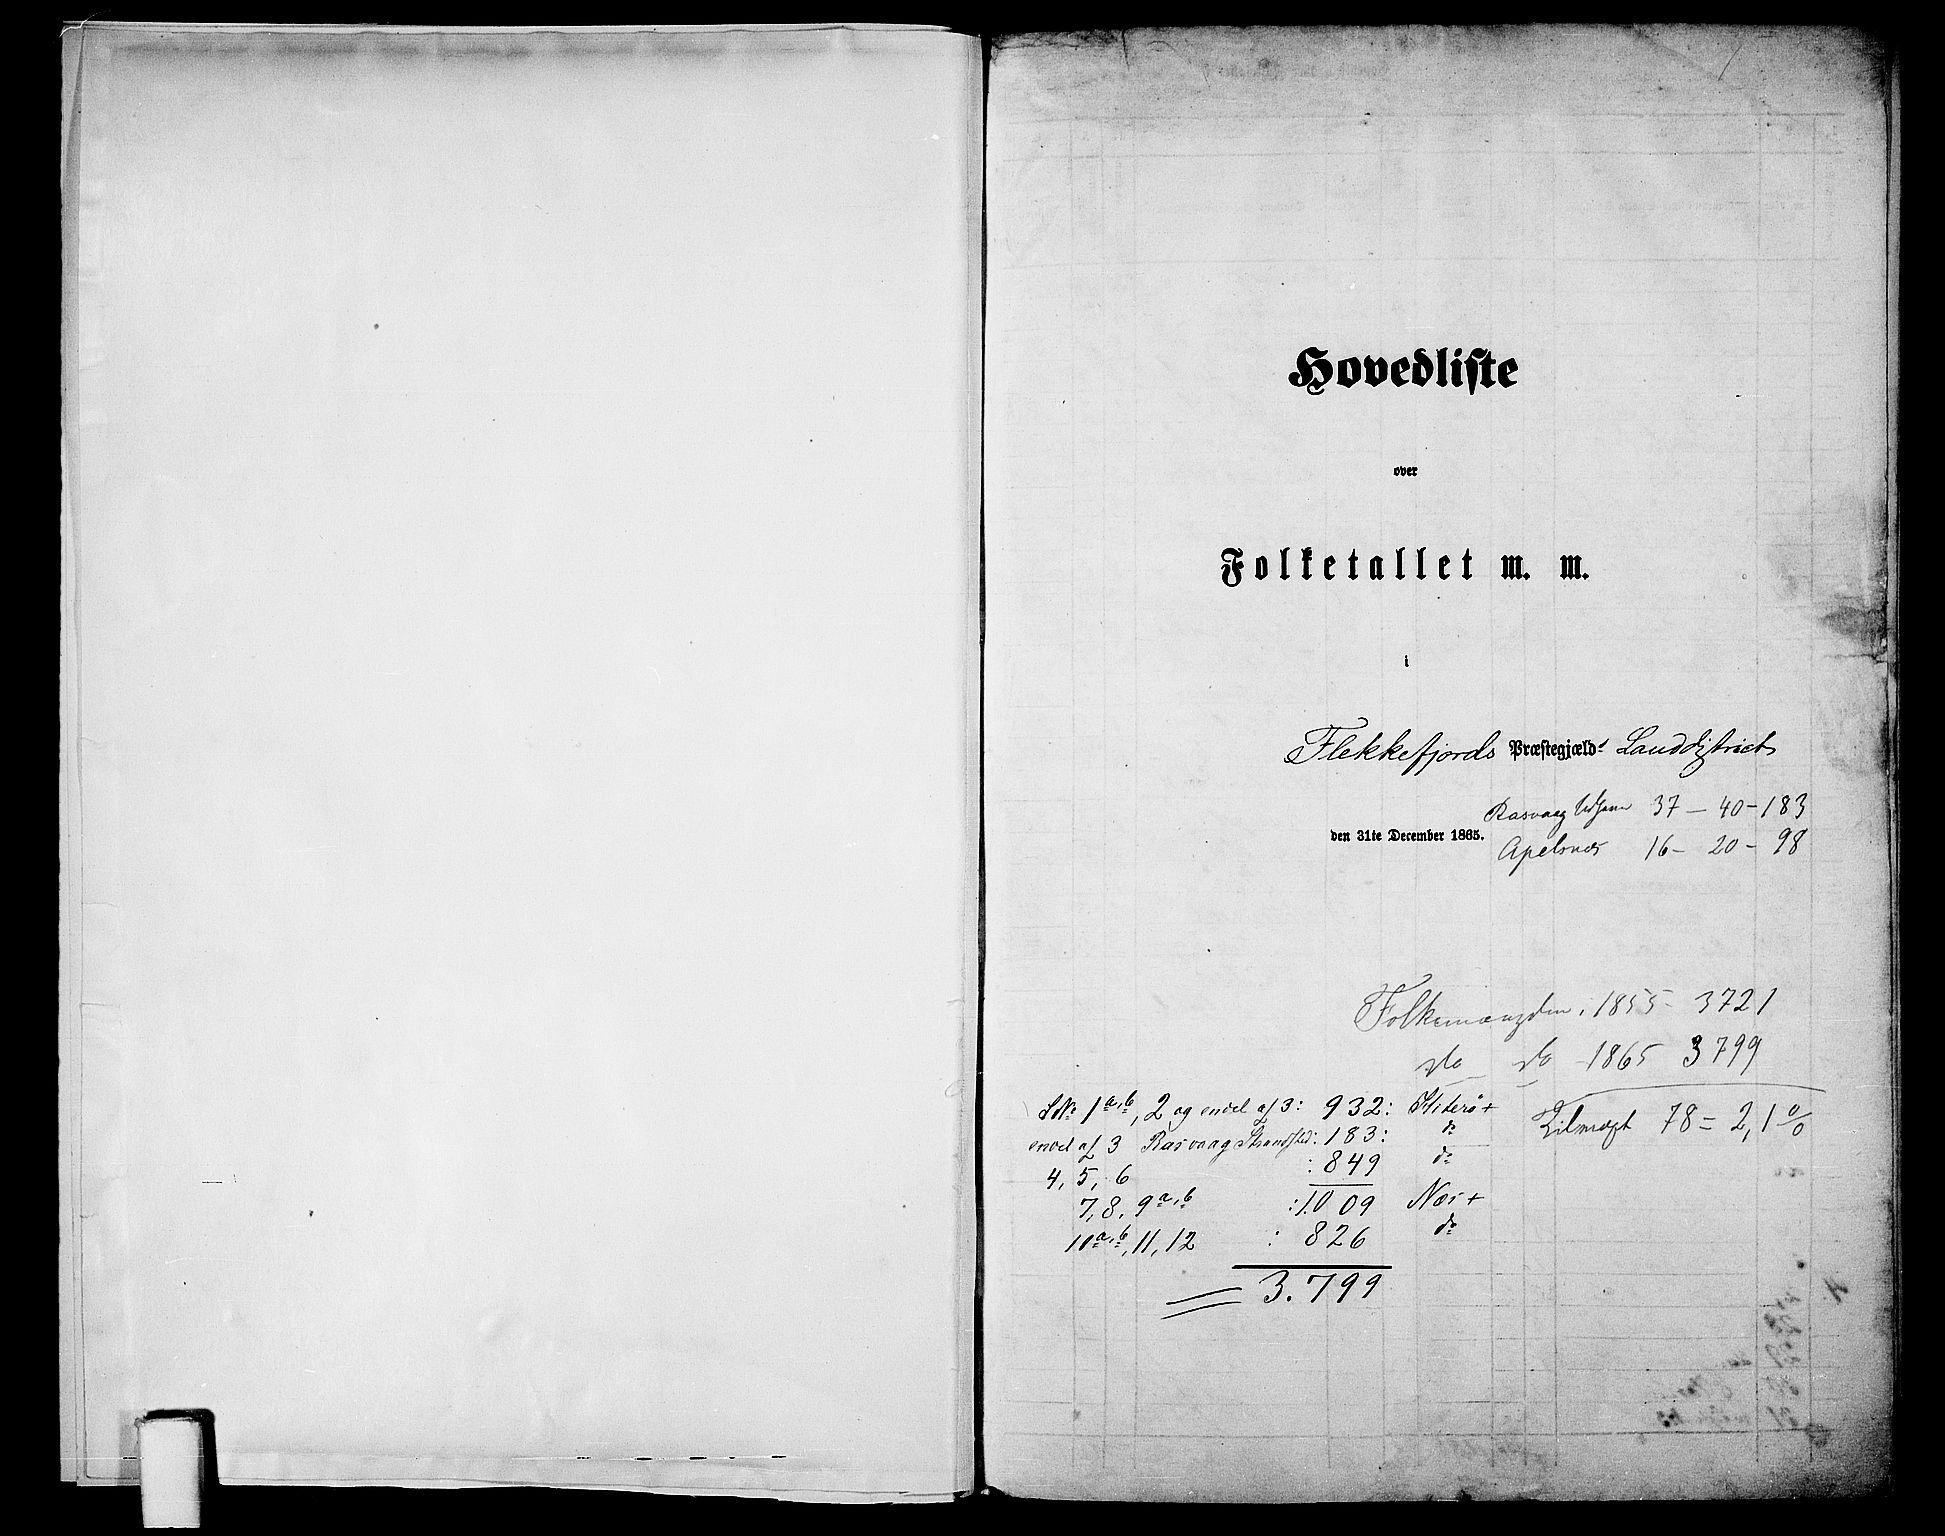 Hovedliste
over
Folketallet m. m.
i
Flekkefjords Præstegjælds Landdistrict
Rasvaag Udhavn 37 — 40 — 183
den 31te December 1865.
Apelsnæs 16 — 20 — 98
Folkemængden i 1855 3721
do do - 1865 3799
Tilvæxt 78 = 2,1 %
S No 1 a, b, 2 og endel af 3: 932: Hiterö +
endel af 3 Rasvaag Strandsted: 183: do
4, 5, 6 : 849 do
7, 8, 9 a, b : 1.009 Næs +
10 a, b, 11, 12 : 826 do
3.799